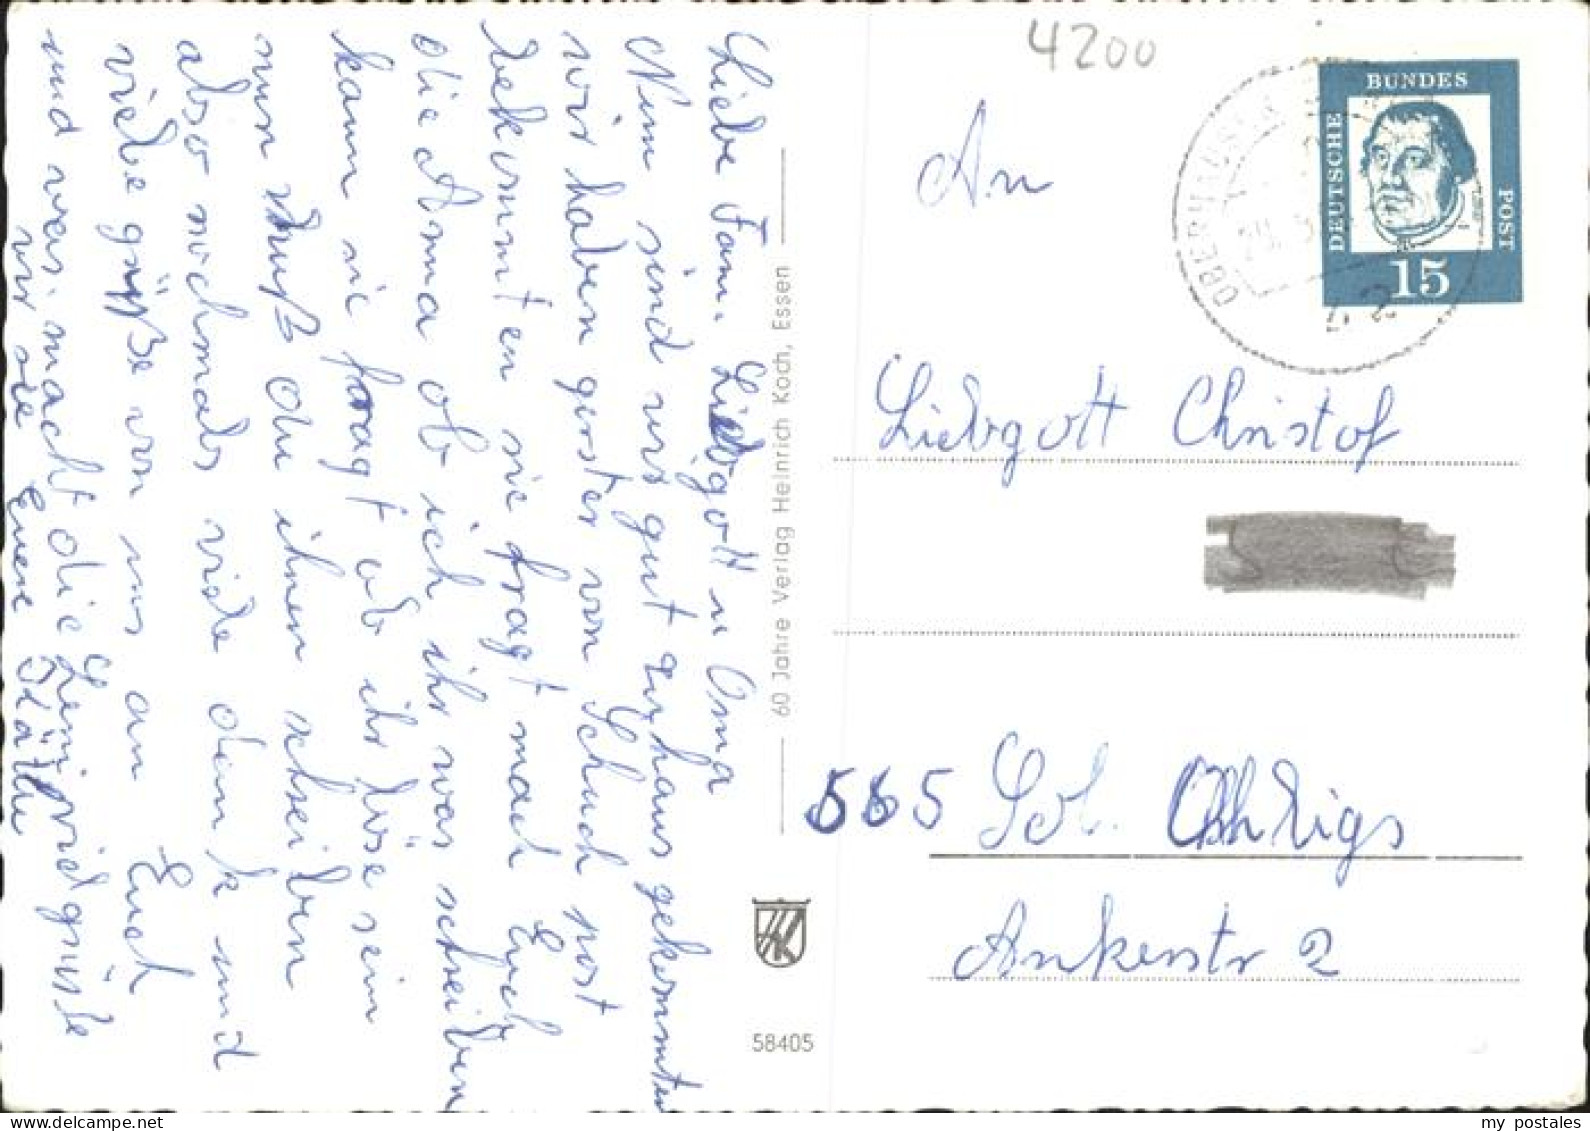 Liebe Fam. Liebgott u Oma
Nun sind wir gut zuhaus gekommen
wir haben gester von Schuch post
bekommen sie fragt nach Euch
die Anna ob ich ihr was schreiben
kann sie fragt ob ihr böse sein
nun muß du ihnen schreiben
also nochmals viele dank und
viele grüße von uns an Euch
und was macht die
wir Eure
60 Jahre Verlag Heinrich Koch, Essen
58405
4200
DEUTSCHE
BUNDES
POST
15
OBERHAUSEN
An
Liebgott Christof
565 Sol. Ohligs
Ankerstr 2
my postales